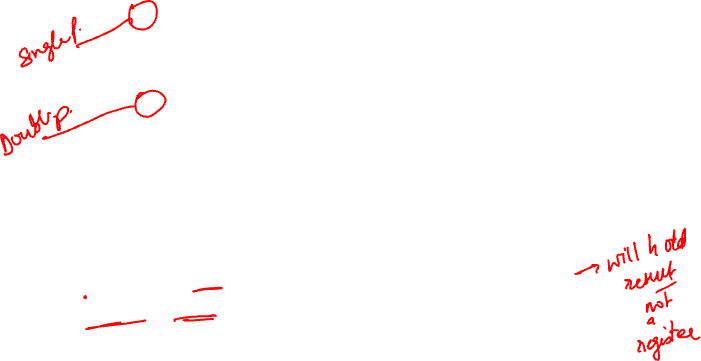 Single p.
Double p.
→ will hold
result
not
a
register